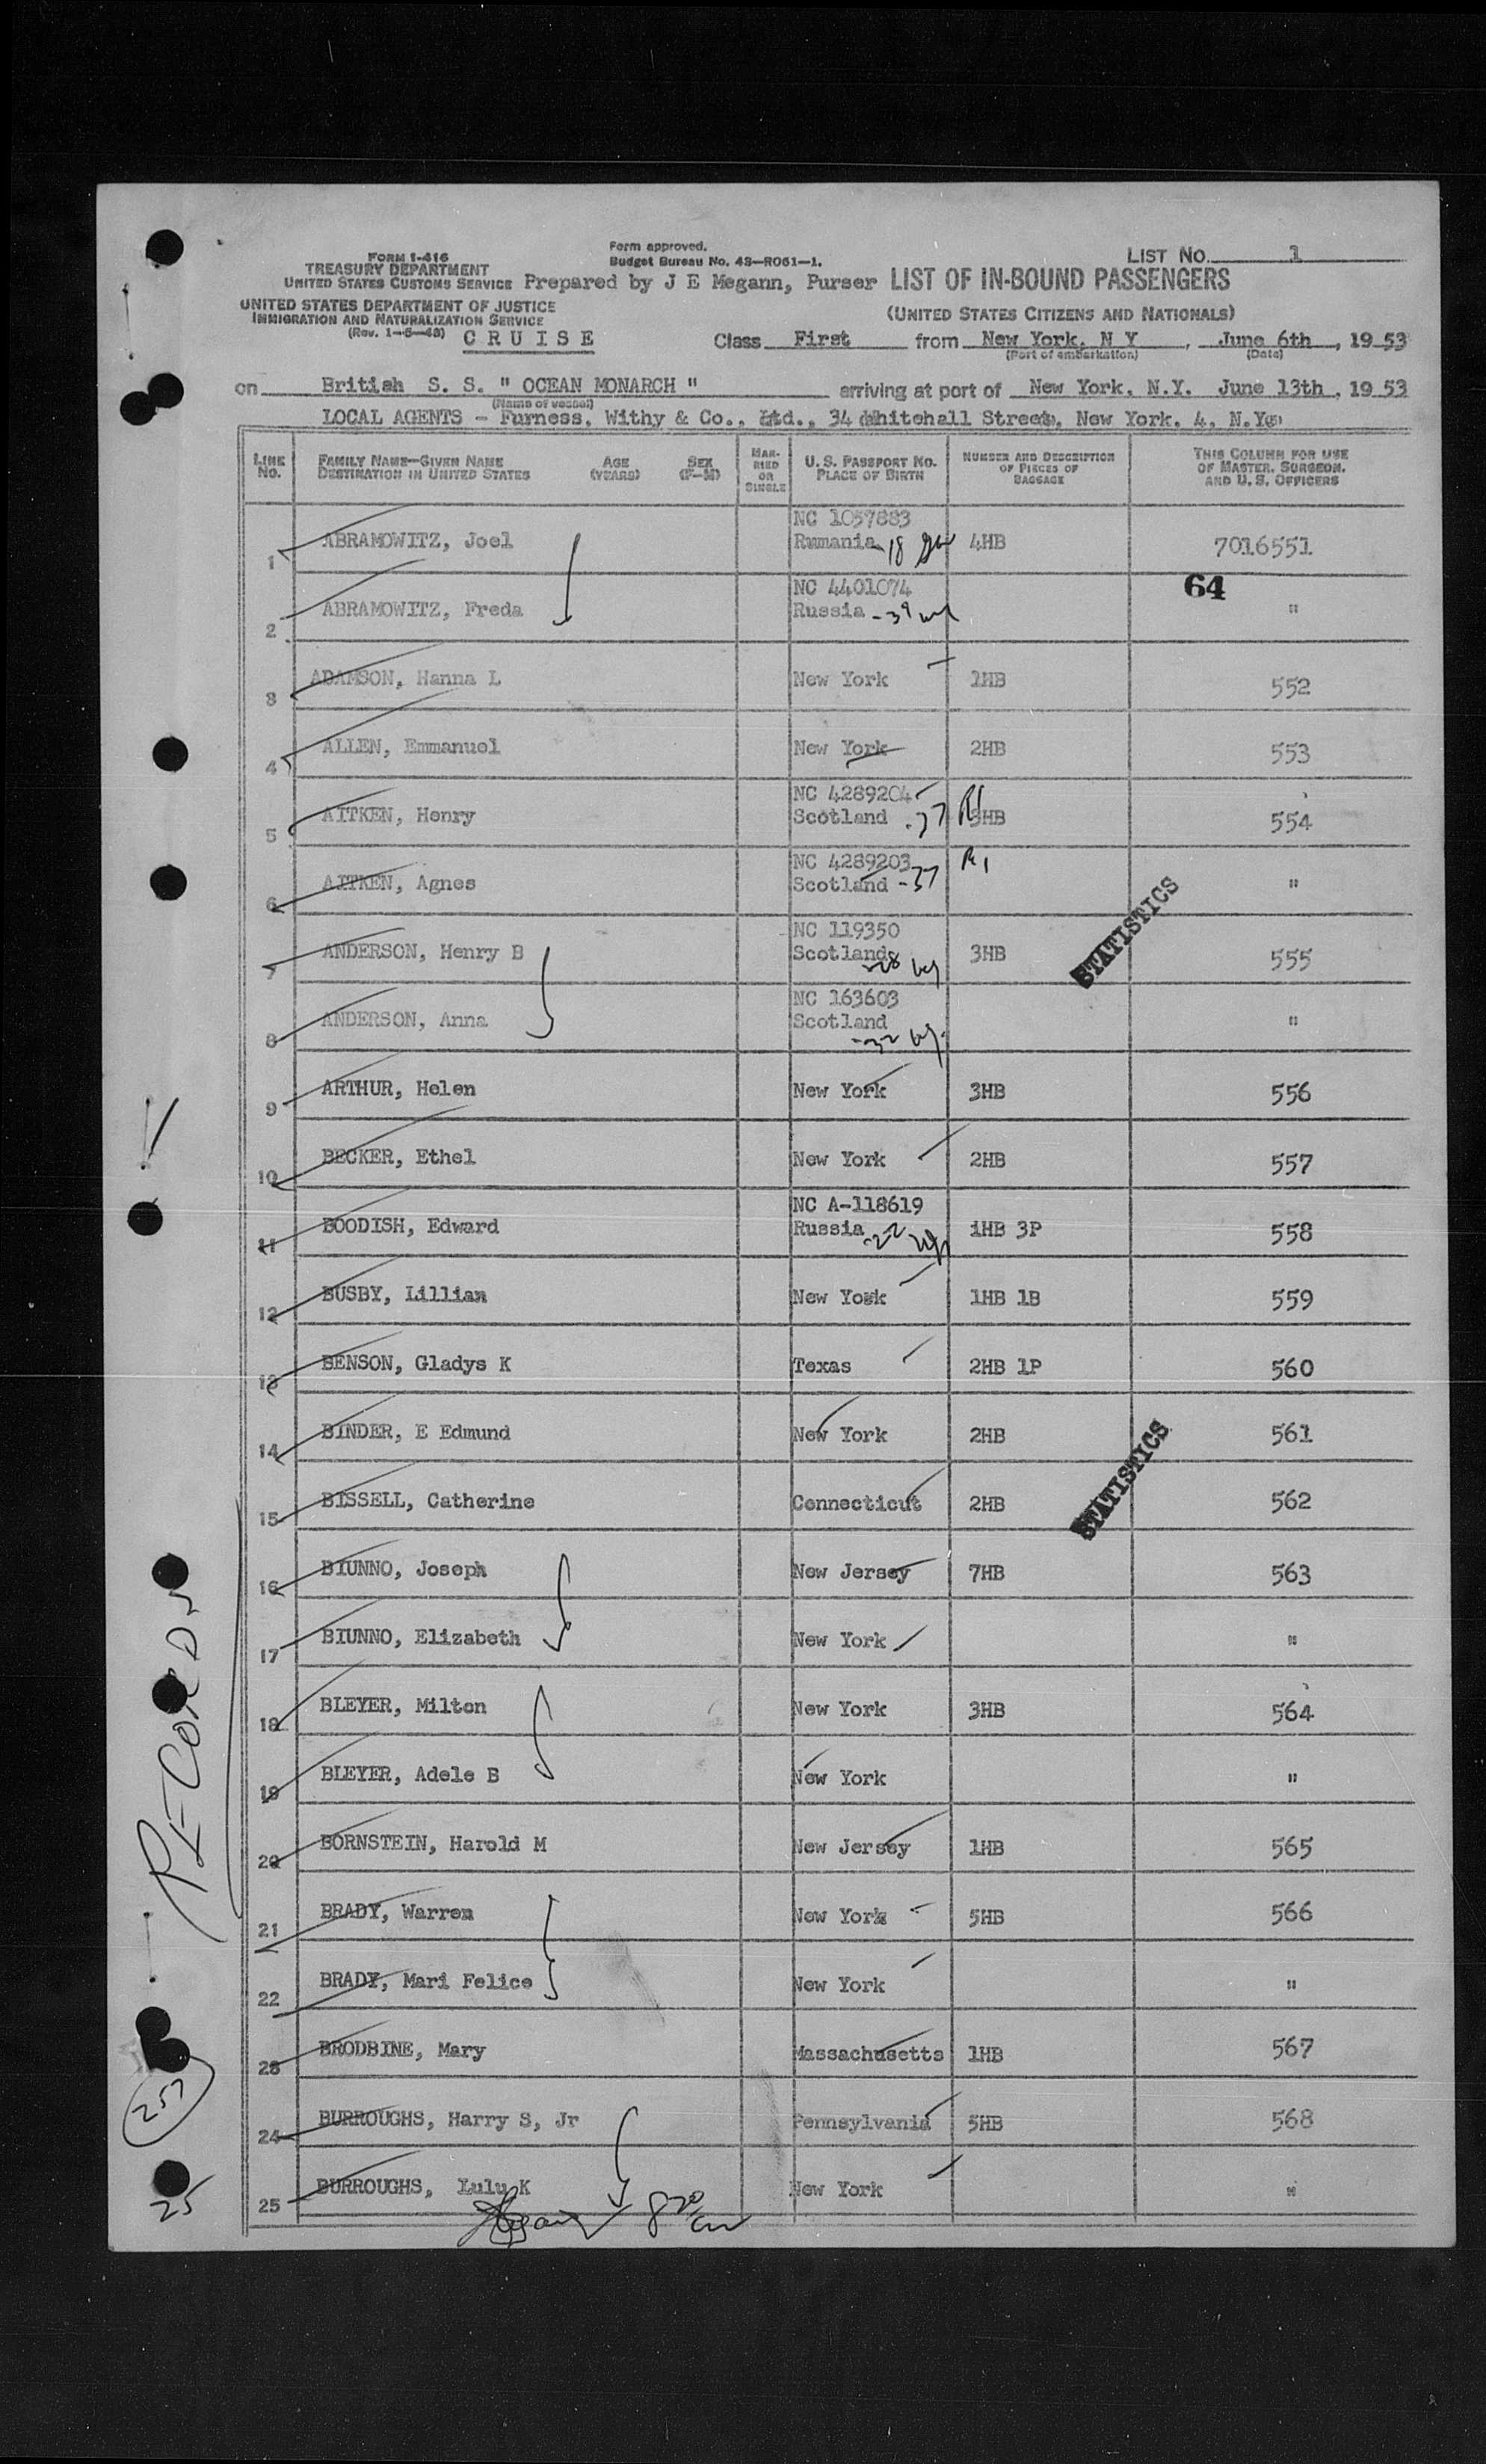 FORM I-416
TREASURY DEPARTMENT
UNITED STATES CUSTOMS SERVICE
UNITED STATES DEPARTMENT OF JUSTICE
IMMIGRATION AND NATURALIZATION SERVICE
(Rev. 1-5-48)
CRUISE
Form approved.
Budget Bureau No. 43-R061-1.
Prepared by J E Megann, Purser
LIST No. 1
LIST OF IN-BOUND PASSENGERS
(UNITED STATES CITIZENS AND NATIONALS)
Class First from New York, N Y, June 6th, 1953
(Port of embarkation) (Date)
on British S. S. " OCEAN MONARCH " arriving at port of New York, N.Y. June 13th, 1953
(Name of vessel)
LOCAL AGENTS - Furness, Withy & Co., Ltd., 34 Whitehall Street, New York. 4, N.Y.
LINE NO. FAMILY NAME—GIVEN NAME DESTINATION IN UNITED STATES AGE (YEARS) SEX (F-M) MARRIED OR SINGLE U. S. PASSPORT NO. PLACE OF BIRTH NUMBER AND DESCRIPTION OF PIECES OF BAGGAGE THIS COLUMN FOR USE OF MASTER, SURGEON, AND U. S. OFFICERS
NC 1057883
1 ABRAMOWITZ, Joel Rumania -18 4HB 7016551
NC 4401074 64
2 ABRAMOWITZ, Freda Russia -39 "
3 ADAMSON, Hanna L New York 1HB 552
4 ALLEN, Emmanuel New York 2HB 553
NC 4289204
5 AITKEN, Henry Scotland -37 3HB 554
NC 4289203
6 AITKEN, Agnes Scotland -37 "
STATISTICS
NC 119350
7 ANDERSON, Henry B Scotland -28 3HB 555
NC 163603
8 ANDERSON, Anna Scotland -32 "
9 ARTHUR, Helen New York 3HB 556
10 BECKER, Ethel New York 2HB 557
NC A-118619
11 BOODISH, Edward Russia -22 1HB 3P 558
12 BUSBY, Lillian New York 1HB 1B 559
13 BENSON, Gladys K Texas 2HB 1P 560
14 BINDER, E Edmund New York 2HB 561
STATISTICS
15 BISSELL, Catherine Connecticut 2HB 562
16 BIUNNO, Joseph New Jersey 7HB 563
17 BIUNNO, Elizabeth New York "
18 BLEYER, Milton New York 3HB 564
19 BLEYER, Adele B New York "
20 BORNSTEIN, Harold M New Jersey 1HB 565
21 BRADY, Warren New York 5HB 566
22 BRADY, Mari Felice New York "
23 BRODBINE, Mary Massachusetts 1HB 567
24 BURROUGHS, Harry S, Jr Pennsylvania 5HB 568
25 BURROUGHS, Lulu K New York "
25